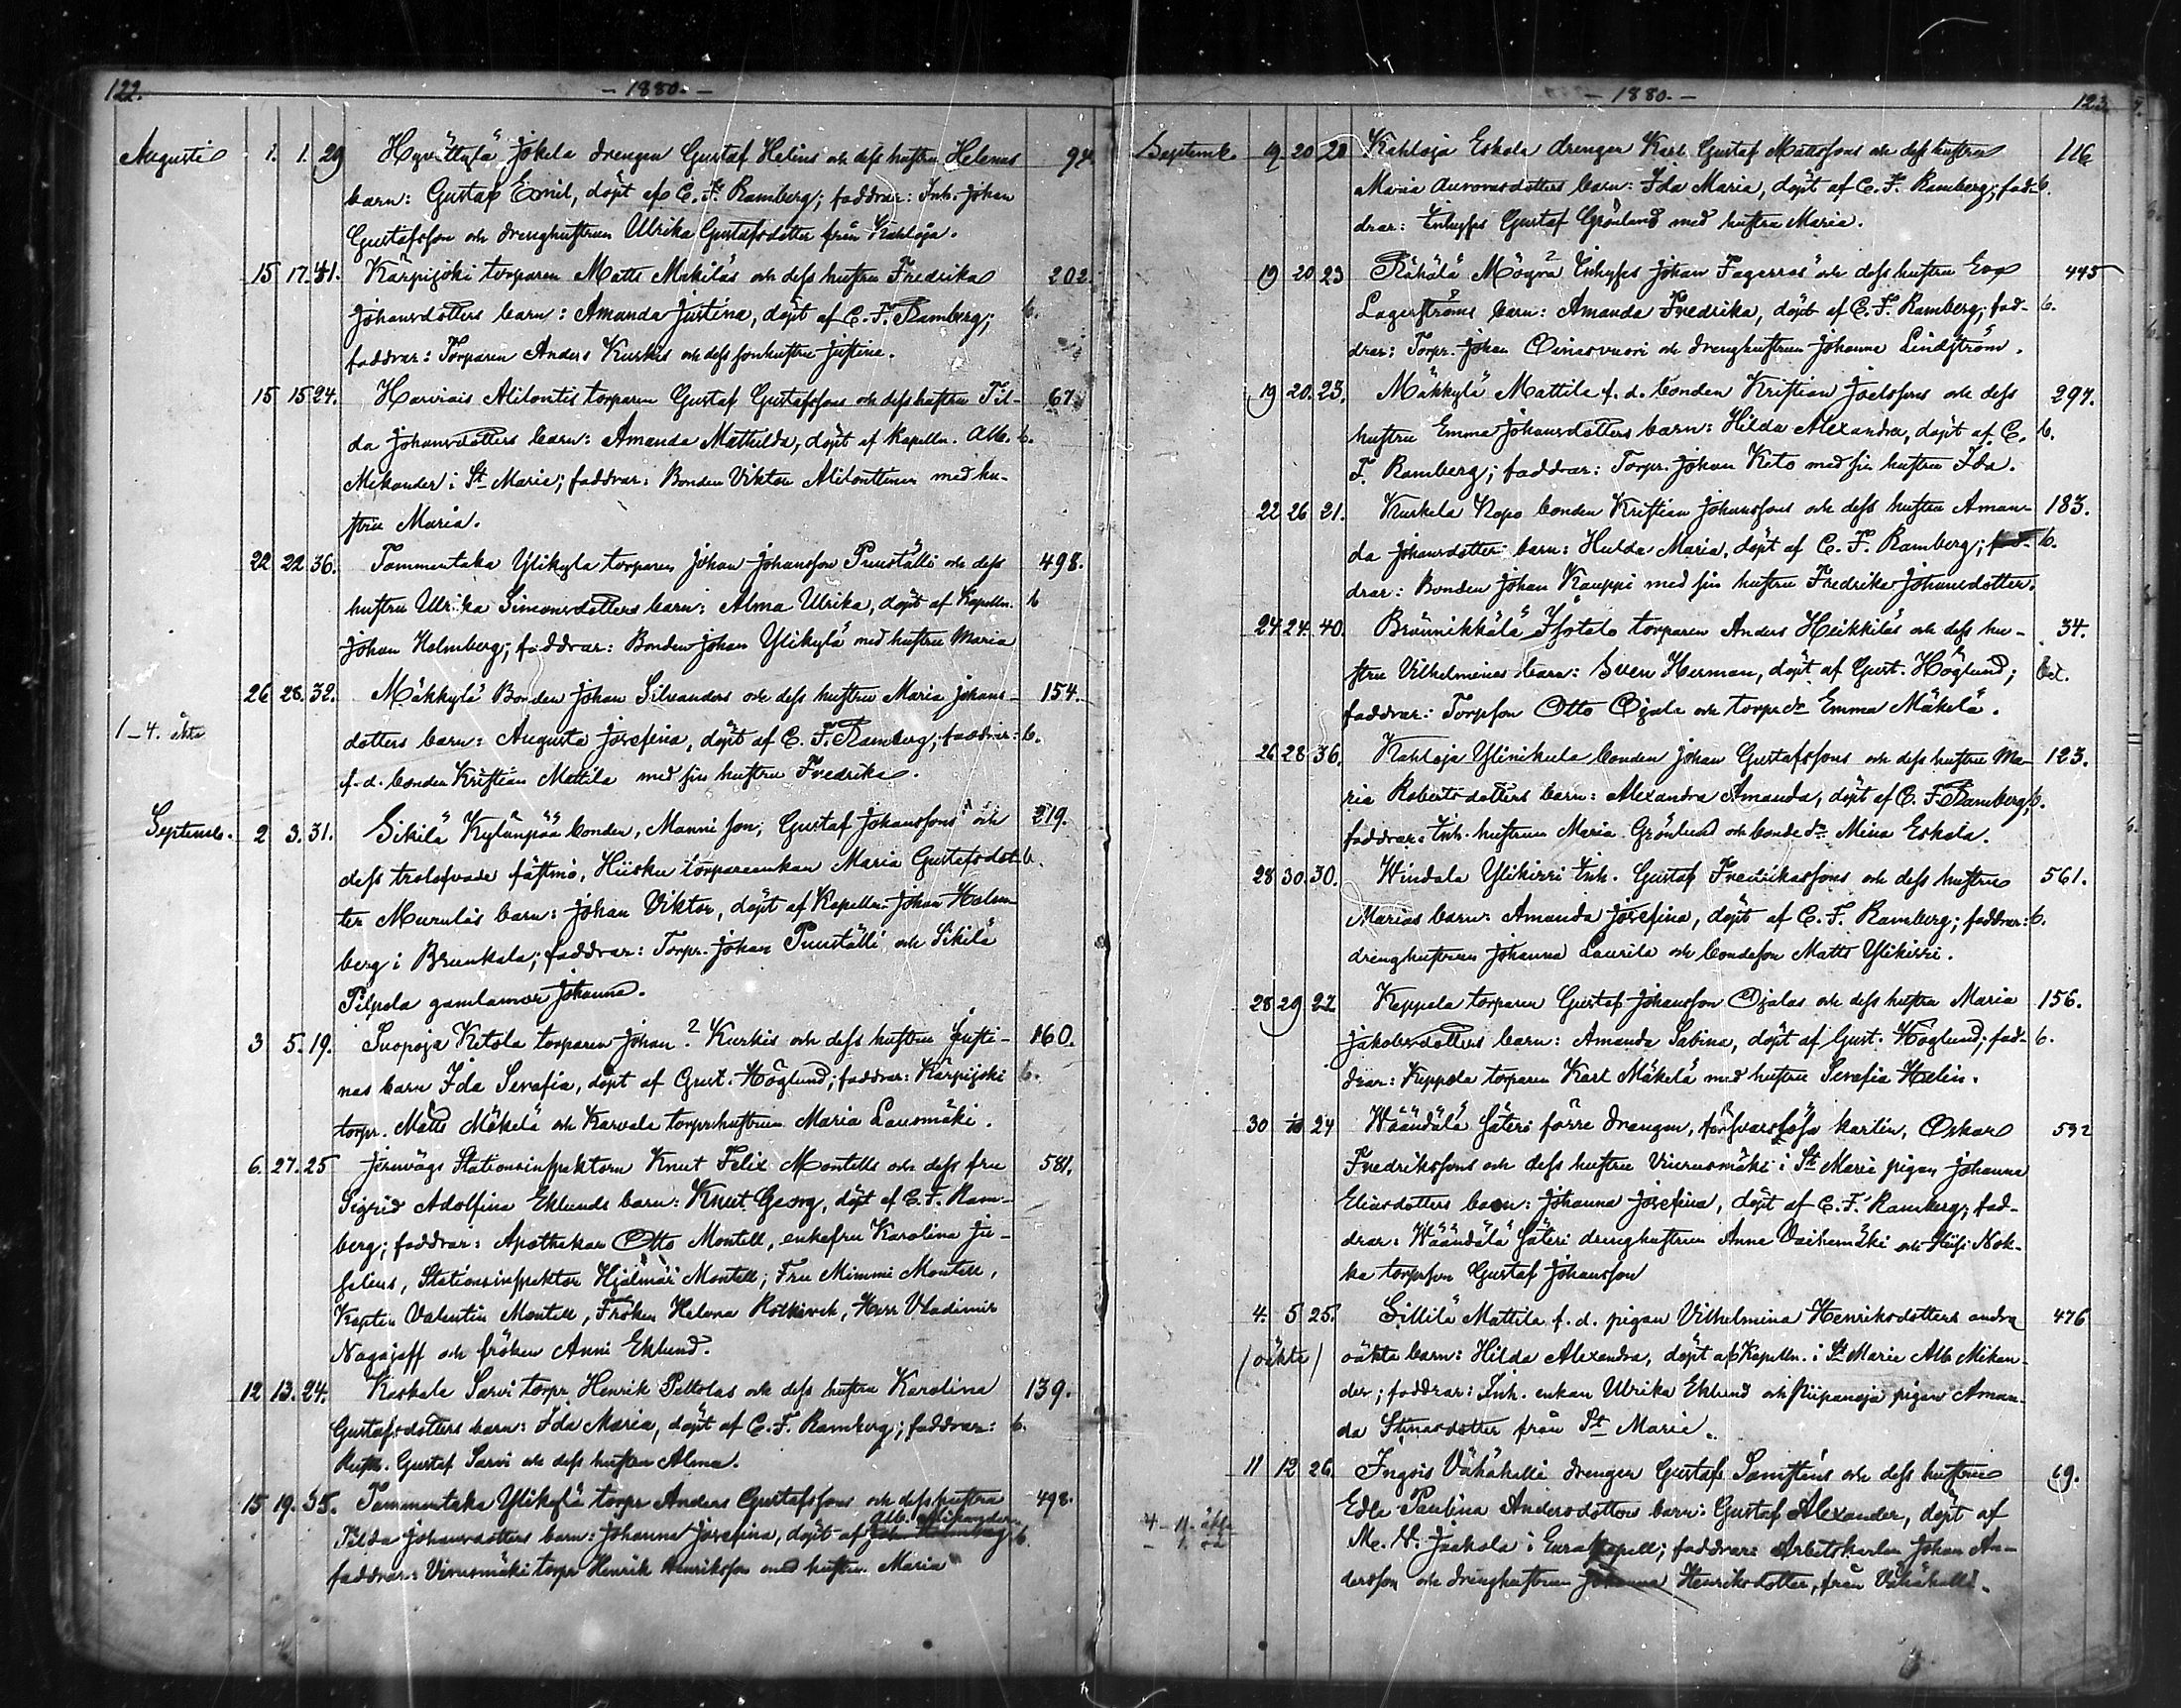 122. - 1880. -
Augusti 1. 1. 29 Hyvättylä Jokela drengen Gustaf Helins och dess hustru Helenas 94.
barn: Gustaf Emil, döpt af C. F. Ramberg; faddrar: Inh. Johan
Gustafsson och drenghustrun Ulrika Gustafsdotter från Kahloja.
15 17. 41. Karpijoki torparen Matts Mäkiläs och dess hustru Fredrika 202.
Johansdotters barn: Amanda Justina, döpt af C. F. Ramberg; b.
faddrar: Torparen Anders Kurkis och dess sonhustru Justina.
15 15 24. Harviais Alilontis torparen Gustaf Gustafssons och dess hustru Til- 67.
da Johansdotters barn: Amanda Mathilda, döpt af Kapelln. Alb. b.
Mikander i St Marie; faddrar: Bonden Viktor Alilonttinen med hu-
stru Maria.
22 22 36. Tammentaka Ylikylä torparen Johan Johansson Puuställi och dess 498.
hustru Ulrika Simonsdotters barn: Alma Ulrika, döpt af Kapelln. b
Johan Holmberg; faddrar: Bonden Johan Ylikylä med hustru Maria
26 28. 32. Mäkkylä Bonden Johan Silvanders och dess hustru Maria Johans- 154.
1-4. äkta dotters barn: Augusta Josefina, döpt af C. F. Ramberg; faddrar: b.
f. d. bonden Kristian Mattila med sin hustru Fredrika.
Septemb. 2 3. 31. Sikilä Kylänpää bonden, Manni son, Gustaf Johanssons och 219.
dess trolofvade fästmö, Hiisku torpareenkan Maria Gustafsdot- b.
ter Murulas barn: Johan Viktor, döpt af Kapelln. Johan Holm-
berg i Brunkala; faddrar: Torpr. Johan Puuställi och Sikilä
Pilpola gamlamor Johanna.
3 5. 19. Suopoja Ketola torparen Johan ? Kurkis och dess hustru Justi- 160.
nas barn Ida Serafia, döpt af Gust. Höglund; faddrar: Karpijoki b.
torpr. Matts Mäkelä och Karvala torprhustrun Maria Lausmäki.
6. 27. 25 Jernvägs Stationsinspektorn Knut Felix Montells och dess fru 581.
Sigrid Adolfina Eklunds barn: Knut Georg, döpt af C. F. Ram-
berg; faddrar: Apothekar Otto Montell, enkefru Karolina Ju-
selius, Stationsinspektor Hjalmar Montell; Fru Mimmi Montell,
Kapten Valentin Montell, Fröken Helena Rotkirch, Herr Vladimir
Nagajeff och fröken Anni Eklund.
12 13. 24. Kaskala Sarvi torpr. Henrik Peltolas och dess hustru Karolina 139.
Gustafsdotters barn: Ida Maria, döpt af C. F. Ramberg; faddrar: b.
Gustaf Sarvi och dess hustru Alma.
15 19. 35. Tammentaka Ylikylä torpr Anders Gustafssons och dess hustru 498.
Alb. Mikander
Tilda Johansdotters barn: Johanna Josefina, döpt af Joh. Holmberg; b.
faddrar: Virusmäki torpr Henrik Henriksson med hustru Maria
- 1880. - 123.
Septemb. 19. 20 21 Kahloja Eskola drengen Karl Gustaf Mattssons och dess hustru 116
Maria Aurorasdotters barn: Ida Maria, döpt af C. F. Ramberg; fad- b.
drar: Inhyses Gustaf Grönlund med hustru Maria.
19 20 23 Rähälä Mögrä Inhyses Johan Fagerros och dess hustru Eva 445
Lagerströms barn: Amanda Fredrika, döpt af C. F. Ramberg; fad- b.
drar: Torpr. Johan Oinasvuori och drenghustrun Johanna Lindström.
19 20. 23. Mäkkylä Mattila f. d. bonden Kristian Joelssons och dess 297.
hustru Emma Johansdotters barn: Hilda Alexandra, döpt af C. b.
F. Ramberg; faddrar: Torpr. Johan Keto med sin hustru Ida.
22 26 21. Kurkela Nopo bonden Kristian Johanssons och dess hustru Aman- 183.
da Johansdotter barn: Hulda Maria, döpt af C. F. Ramberg; fad- b.
drar: Bonden Johan Kauppi med sin hustru Fredrika Johansdotter.
24 24. 40. Brännikkälä Isotalo torparen Anders Heikkiläs och dess hu- 34.
stru Vilhelminas barn: Sven Herman, döpt af Gust. Höglund;
faddrar: Torpson Otto Ojala och torpdr Emma Mäkelä.
26 28 36. Kahloja Ylinikula bonden Johan Gustafssons och dess hustru Ma- 123.
ria Robertsdotters barn: Alexandra Amanda, döpt af C. F. Ramberg; b.
faddrar: Inh. hustrun Maria Grönlund och bondedr Mina Eskola.
28 30 30. Windala Ylikirri Inh. Gustaf Fredrikssons och dess hustru 561.
Marias barn: Amanda Josefina, döpt af C. F. Ramberg; faddrar: b.
drenghustrun Johanna Laurila och bondeson Matts Ylikirri.
28 29 22 Keppola torparen Gustaf Johansson Ojalas och dess hustru Maria 156.
Jakobsdotters barn: Amanda Sabina, döpt af Gust. Höglund; fad- b.
drar: Keppola torparen Karl Mäkelä med hustru Serafia Helin.
30 24 Wääntälä Säteri förre drängen, försvarslöse karlen, Oskar 532
Fredrikssons och dess hustru Virusmäki i St Marie pigan Johanna
Eliasdotters barn: Johanna Josefina, döpt af C. F. Ramberg; fad-
drar: Wääntälä Säteri drenghustrun Anna Vaihemäki och Nok-
ka torpson Gustaf Johansson
4. 5 25. Sillilä Mattila f. d. pigan Vilhelmina Henriksdotters andra 476
(oäkta) oäkta barn: Hilda Alexandra, döpt af Kapelln. i St Marie Alb Mikan-
der; faddrar: Inh. enkan Ulrika Eklund och Riipanoja pigan Aman-
da Stinasdotter från St Marie.
11 12 26. Ingois Vähähalli drengen Gustaf Samsténs och dess hustru 69.
Edla Paulina Andersdotters barn: Gustaf Alexander, döpt af
4 - 11. äkta M. V. Jaakola i Eura kapell; faddrar: Arbetskarlen Johan An-
- 1. oä dersson och drenghustrun Johanna Henriksdotter, från Vähähalli.